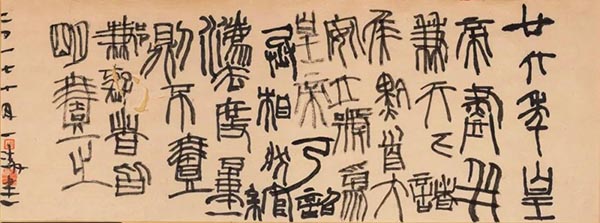 廿六年皇
帝盡并
兼天下諸
侯黔首大
安立號為
皇帝乃詔
丞相狀綰
灋度量
則不壹
歉疑者皆
明壹之
二〇一七十月